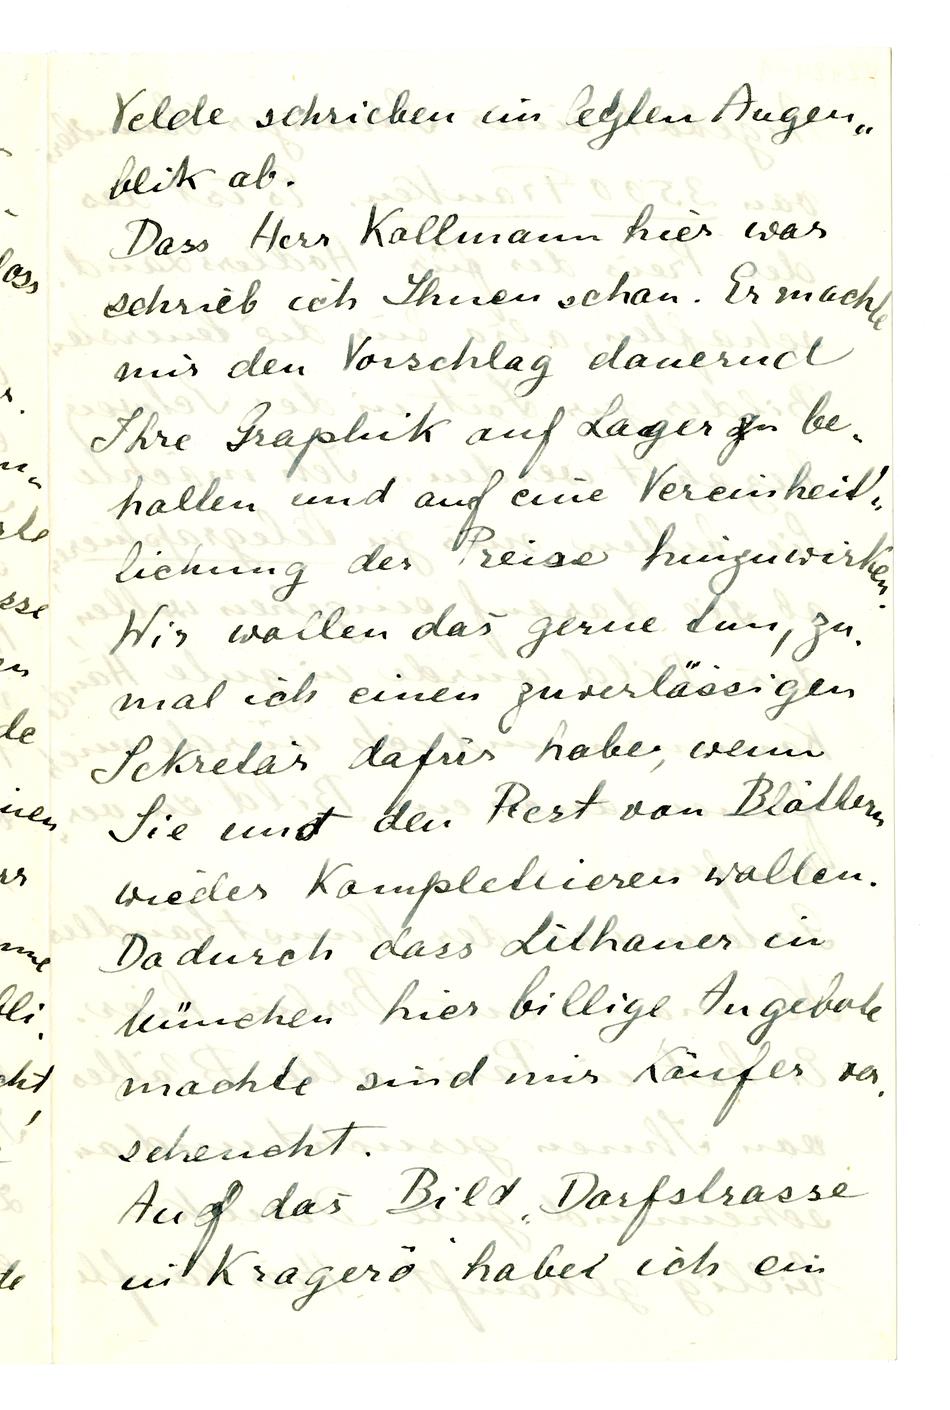 Velde schrieben im letzten Augen„
blik ab.
Dass Herr Kollmann hier war
schrieb ich Ihnen schon. Er machte
mir den Vorschlag dauernd
Ihre Graphik auf Lager zu be-
halten und auf eine Vereinheit„
lichung der Preise hinzuwirken.
Wir wollen das gerne tun, zu-
mal ich einen zuverlässigen
Sekretär dafür habe, wenn
Sie und den Rest von Blättern
wieder Komplettieren wollen.
Dadurch dass Lithauer in
München hier billige Angebote
machte sind mir Käufer ver-
scheucht.
Auf das Bild „Dorfstrasse
in Kragerö" habe ich ein